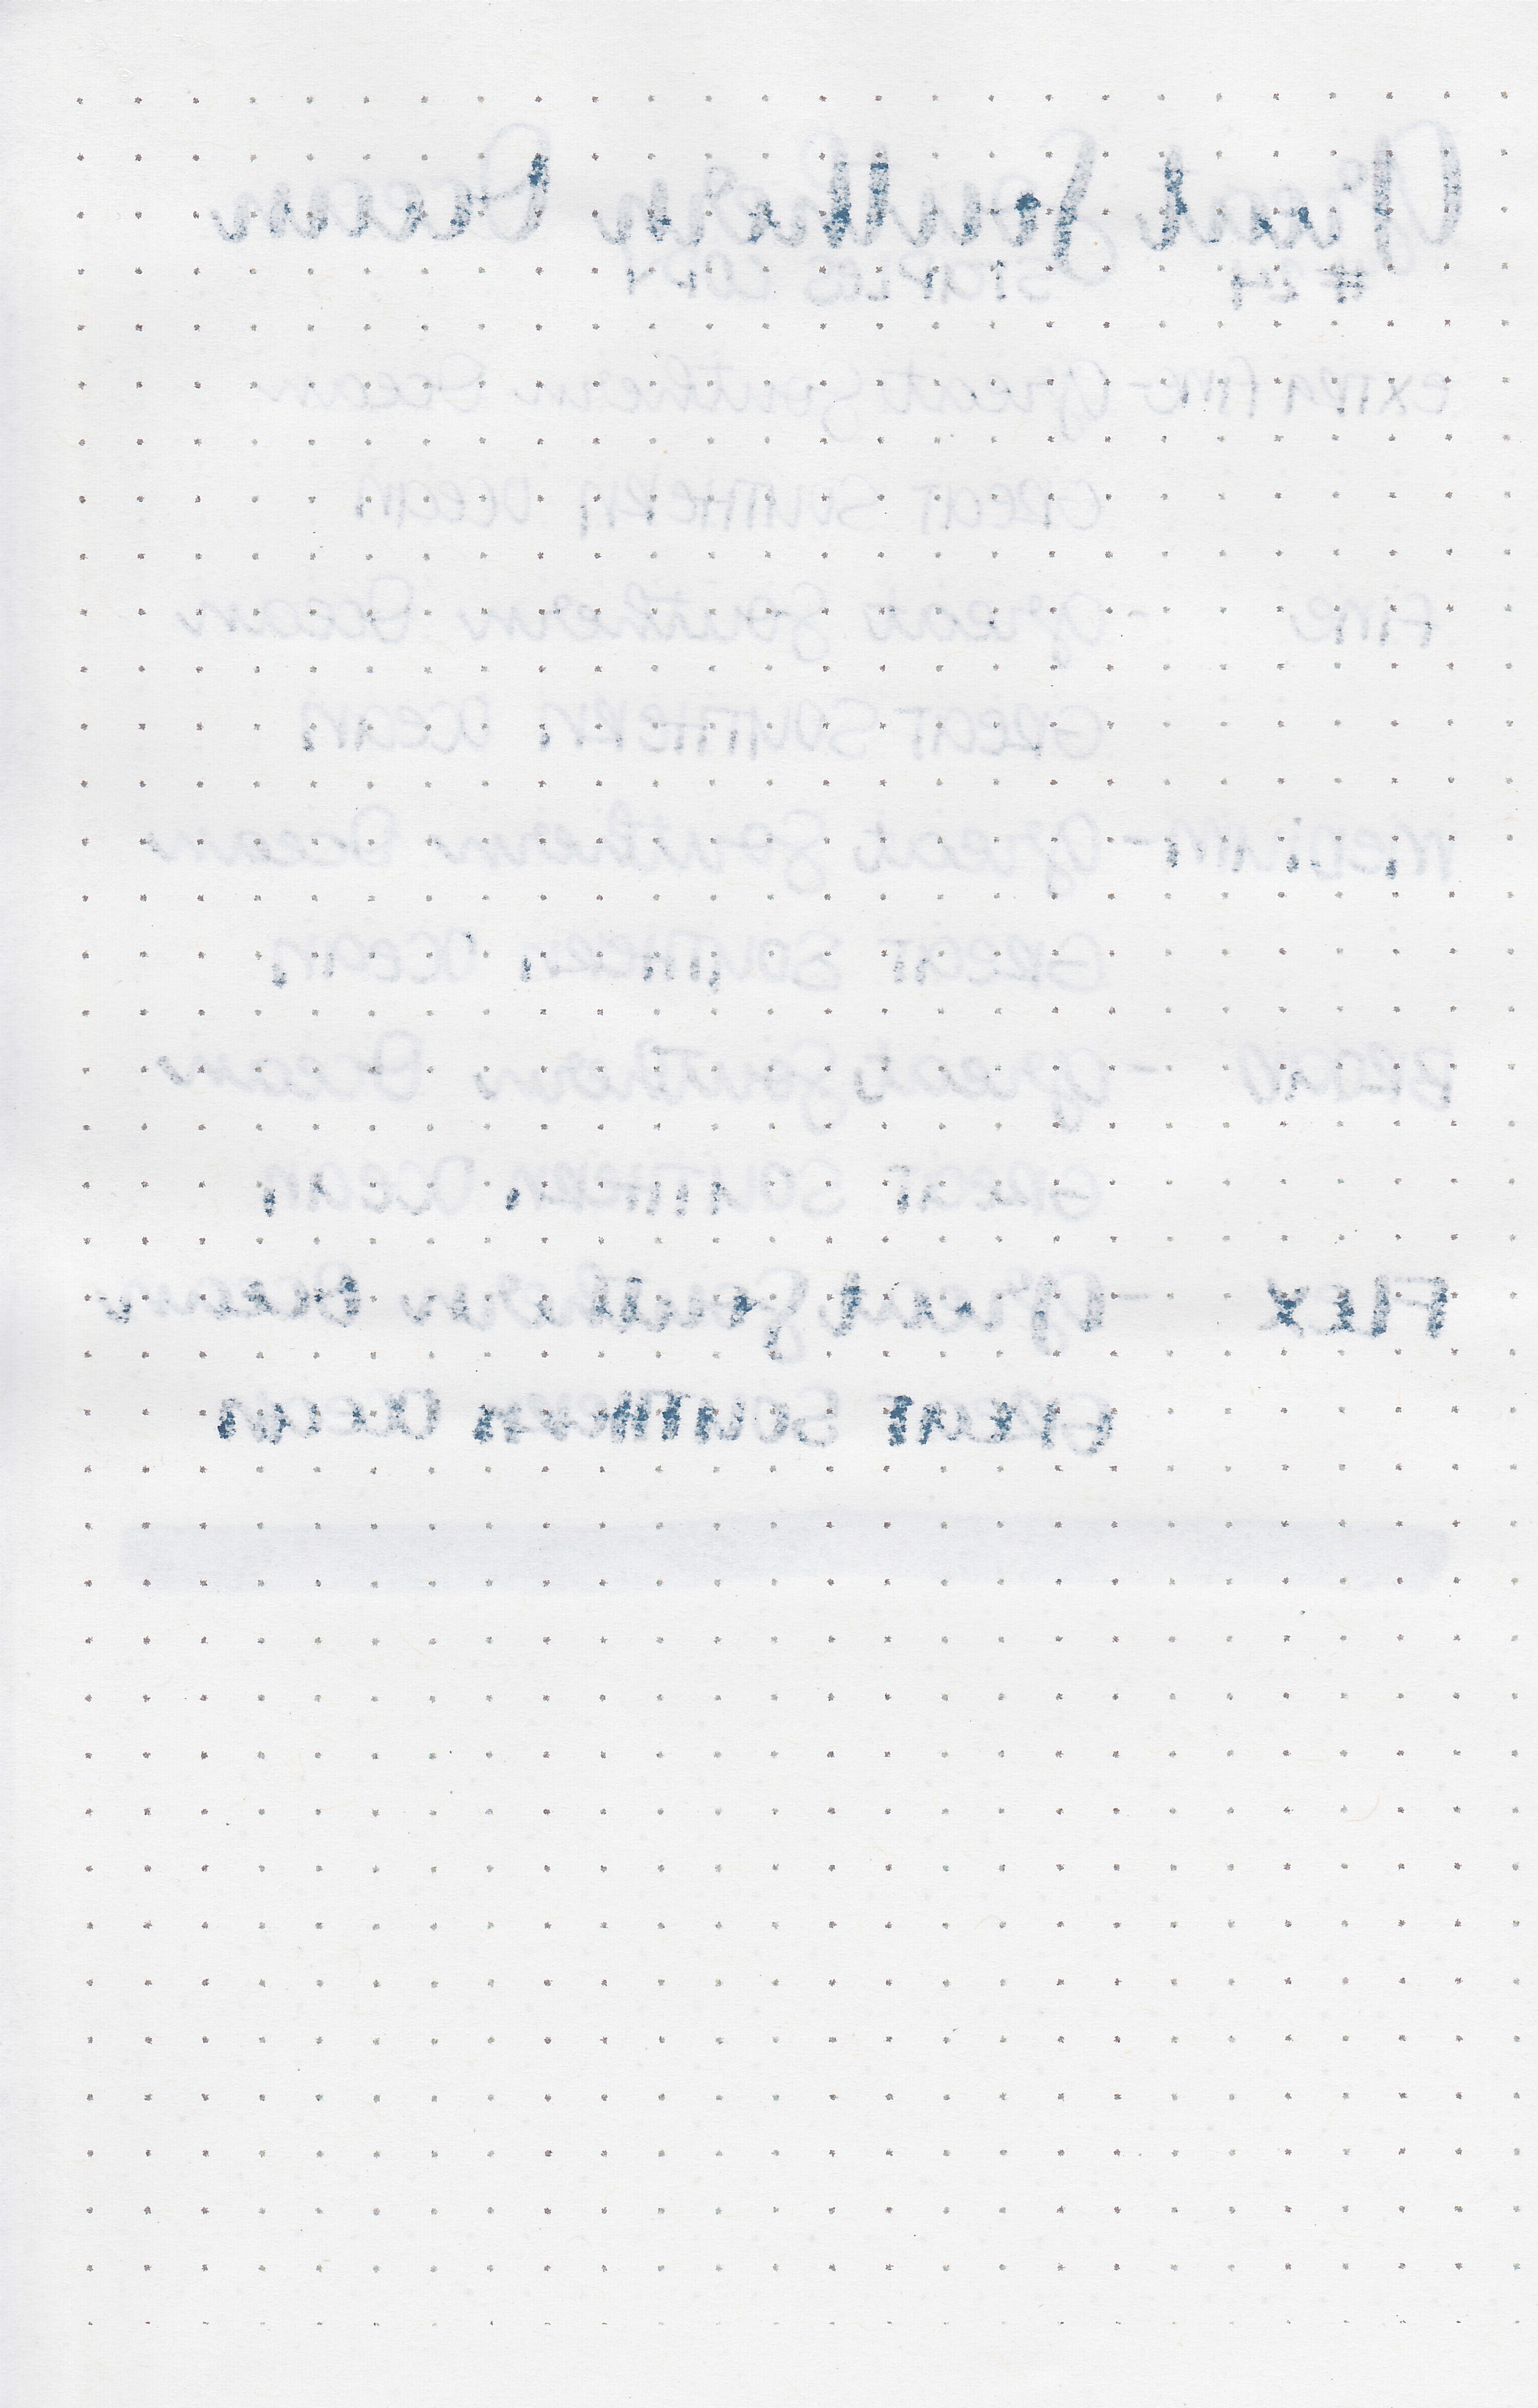 Great Southern Ocean
#24 STAPLES COPY
EXTRA FINE - Great Southern Ocean
GREAT SOUTHERN OCEAN
FINE - Great Southern Ocean
GREAT SOUTHERN OCEAN
MEDIUM - Great Southern Ocean
GREAT SOUTHERN OCEAN
BROAD - Great Southern Ocean
GREAT SOUTHERN OCEAN
FLEX - Great Southern Ocean
GREAT SOUTHERN OCEAN